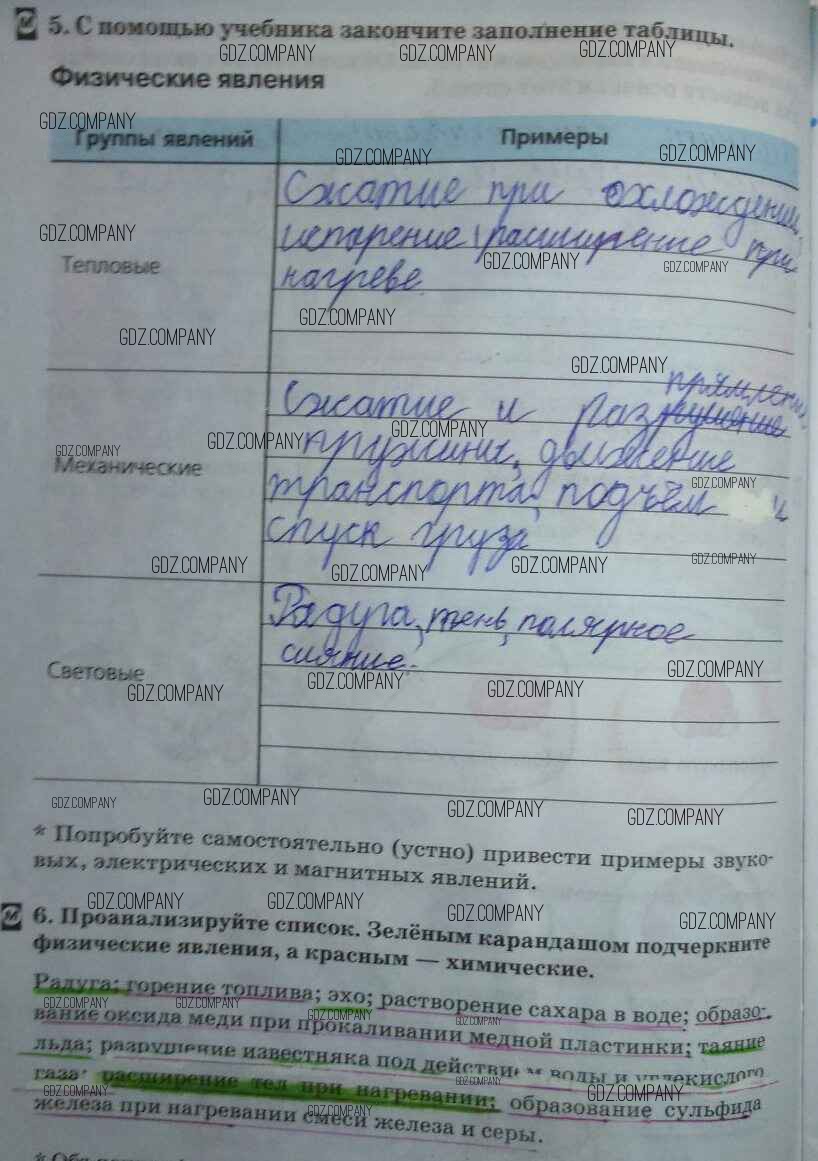 5. С помощью учебника закончите заполнение таблицы.
GDZ.COMPANY GDZ.COMPANY GDZ.COMPANY
Физические явления
GDZ.COMPANY
Группы явлений Примеры
GDZ.COMPANY GDZ.COMPANY
Сжатие при охлождении,
GDZ.COMPANY
испарение, расширение при
Тепловые GDZ.COMPANY GDZ.COMPANY
нагреве.
GDZ.COMPANY
GDZ.COMPANY
GDZ.COMPANY
прямление
Сжатие и раз
GDZ.COMPANY GDZ.COMPANY GDZ.COMPANY
Механические пружины, движение
GDZ.COMPANY
транспорта, подъём и
спуск груза
GDZ.COMPANY GDZ.COMPANY GDZ.COMPANY GDZ.COMPANY
Радуга, тень, полярное
сияние.
Световые GDZ.COMPANY GDZ.COMPANY
GDZ.COMPANY GDZ.COMPANY
GDZ.COMPANY GDZ.COMPANY GDZ.COMPANY GDZ.COMPANY
* Попробуйте самостоятельно (устно) привести примеры звуко-
вых, электрических и магнитных явлений.
GDZ.COMPANY GDZ.COMPANY GDZ.COMPANY GDZ.COMPANY
6. Проанализируйте список. Зелёным карандашом подчеркните
физические явления, а красным — химические.
Радуга; горение топлива; эхо; растворение сахара в воде; образо-
GDZ.COMPANY GDZ.COMPANY GDZ.COMPANY GDZ.COMPANY
вание оксида меди при прокаливании медной пластинки; таяние
льда; разрушение известняка под действием воды и углекислого
газа; расширение тел при нагревании; образование сульфида
GDZ.COMPANY GDZ.COMPANY GDZ.COMPANY GDZ.COMPANY
железа при нагревании смеси железа и серы.